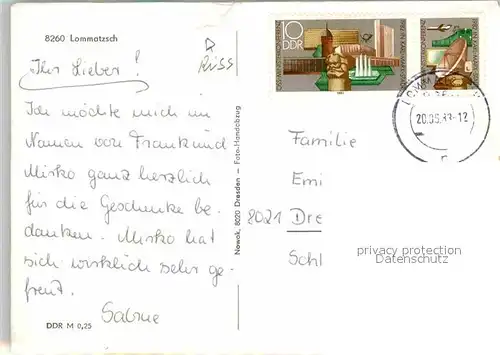 8260 Lommatzsch
Riss
Ihr Lieben!
Ich möchte mich im
Namen von Frank und
Mirko ganz herzlich
für die Geschenke be-
danken. Mirko hat
sich wirklich sehr ge-
freut.
Sabine
DDR M 0,25
Nowak, 8020 Dresden – Foto-Handabzug
10
DDR
20.05.83-12
Familie
Emi
8021 Dre
Schl
privacy protection
Datenschutz